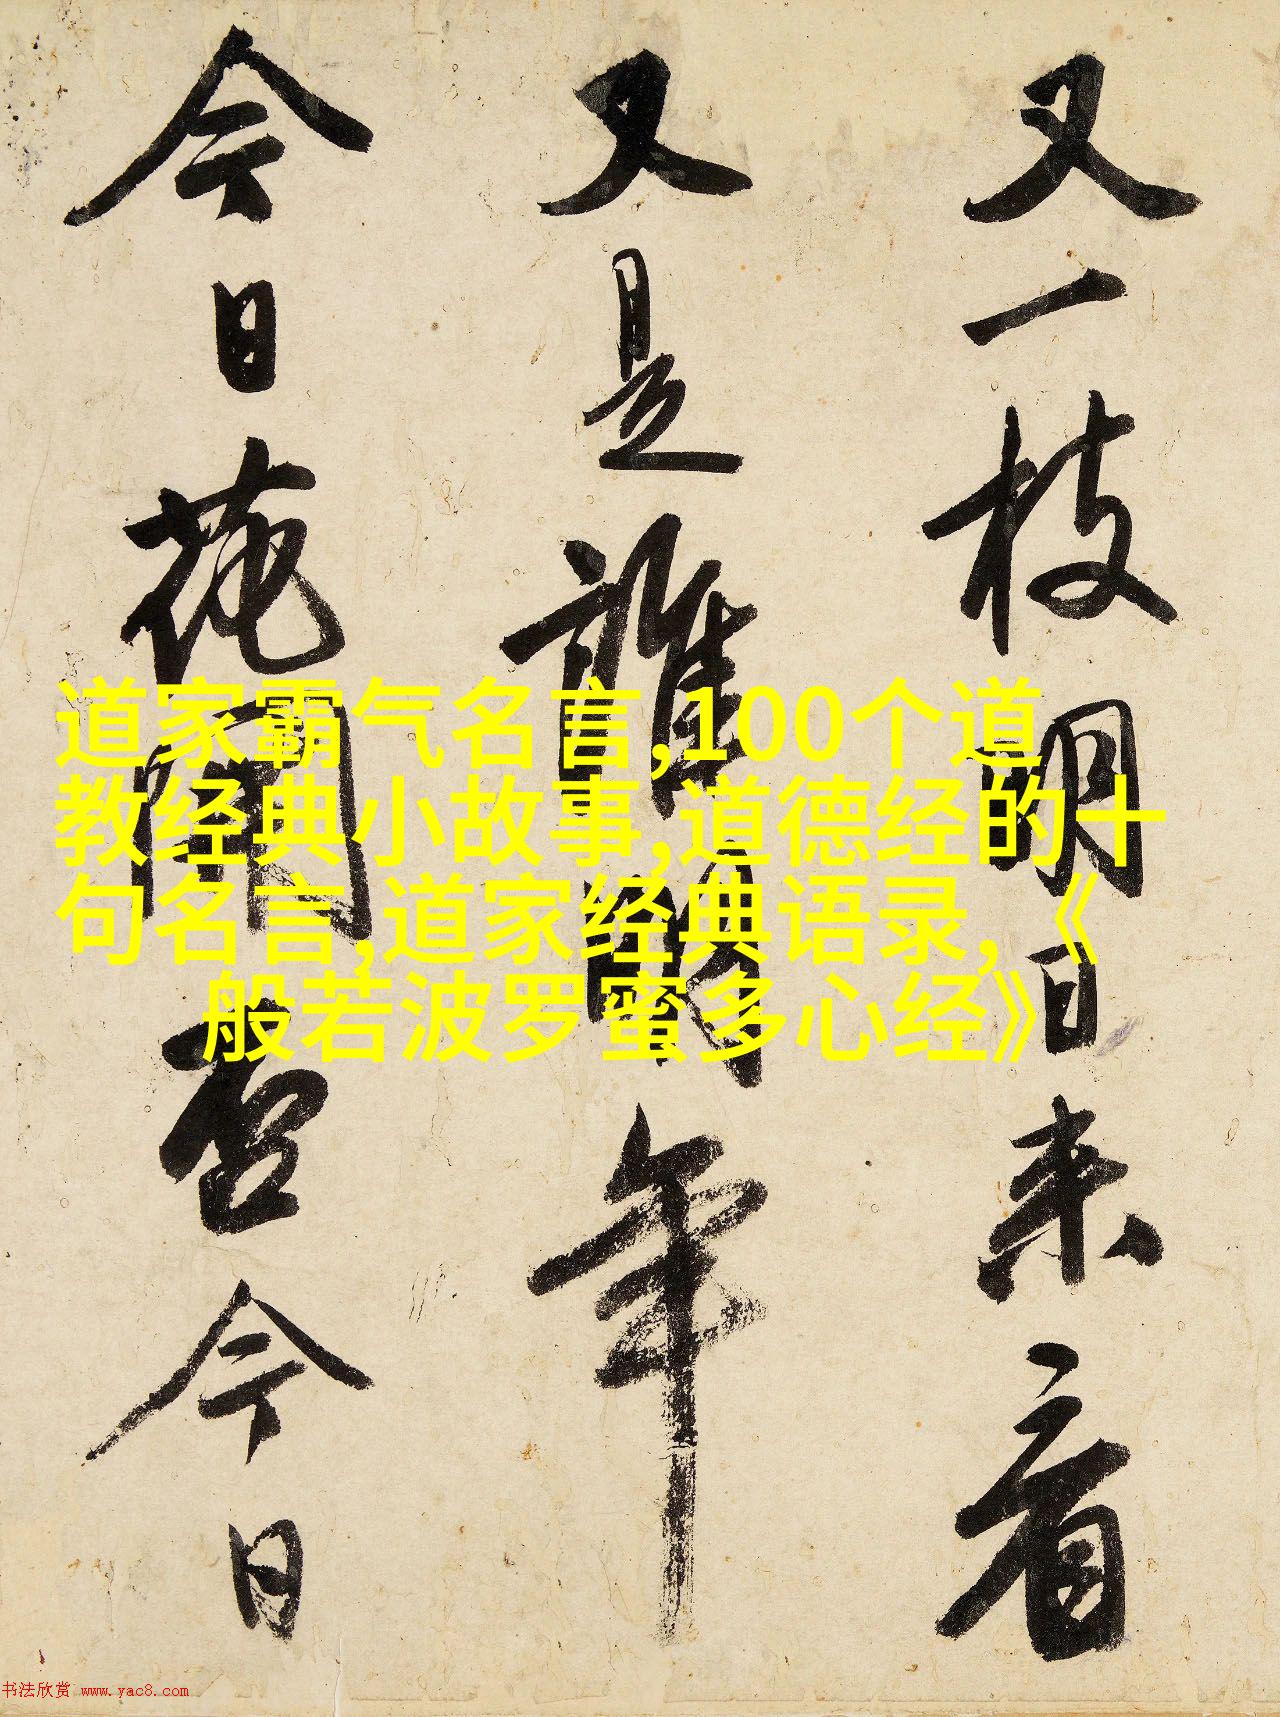 又一枝明日来看
又是誰家年
今日花開否今日
道家霸气名言,100个道
教经典小故事,道德经的十
句名言,道家经典语录,《
般若波罗蜜多心经》
书法欣赏 www.yac8.com